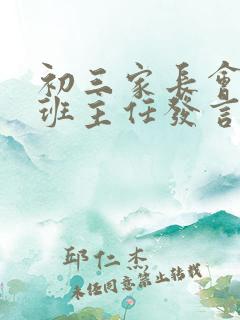 初三家長會
班主任發言
邱仁杰
未经同意禁止转载